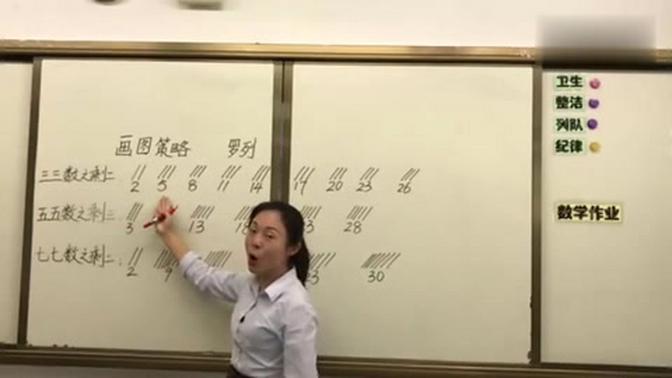 画图策略 罗列
三三数之剩二 2 5 8 11 14 17 20 23 26
五五数之剩三 3 13 18 23 28
七七数之剩二 2 9 23 30
卫生
整洁
列队
纪律
数学作业